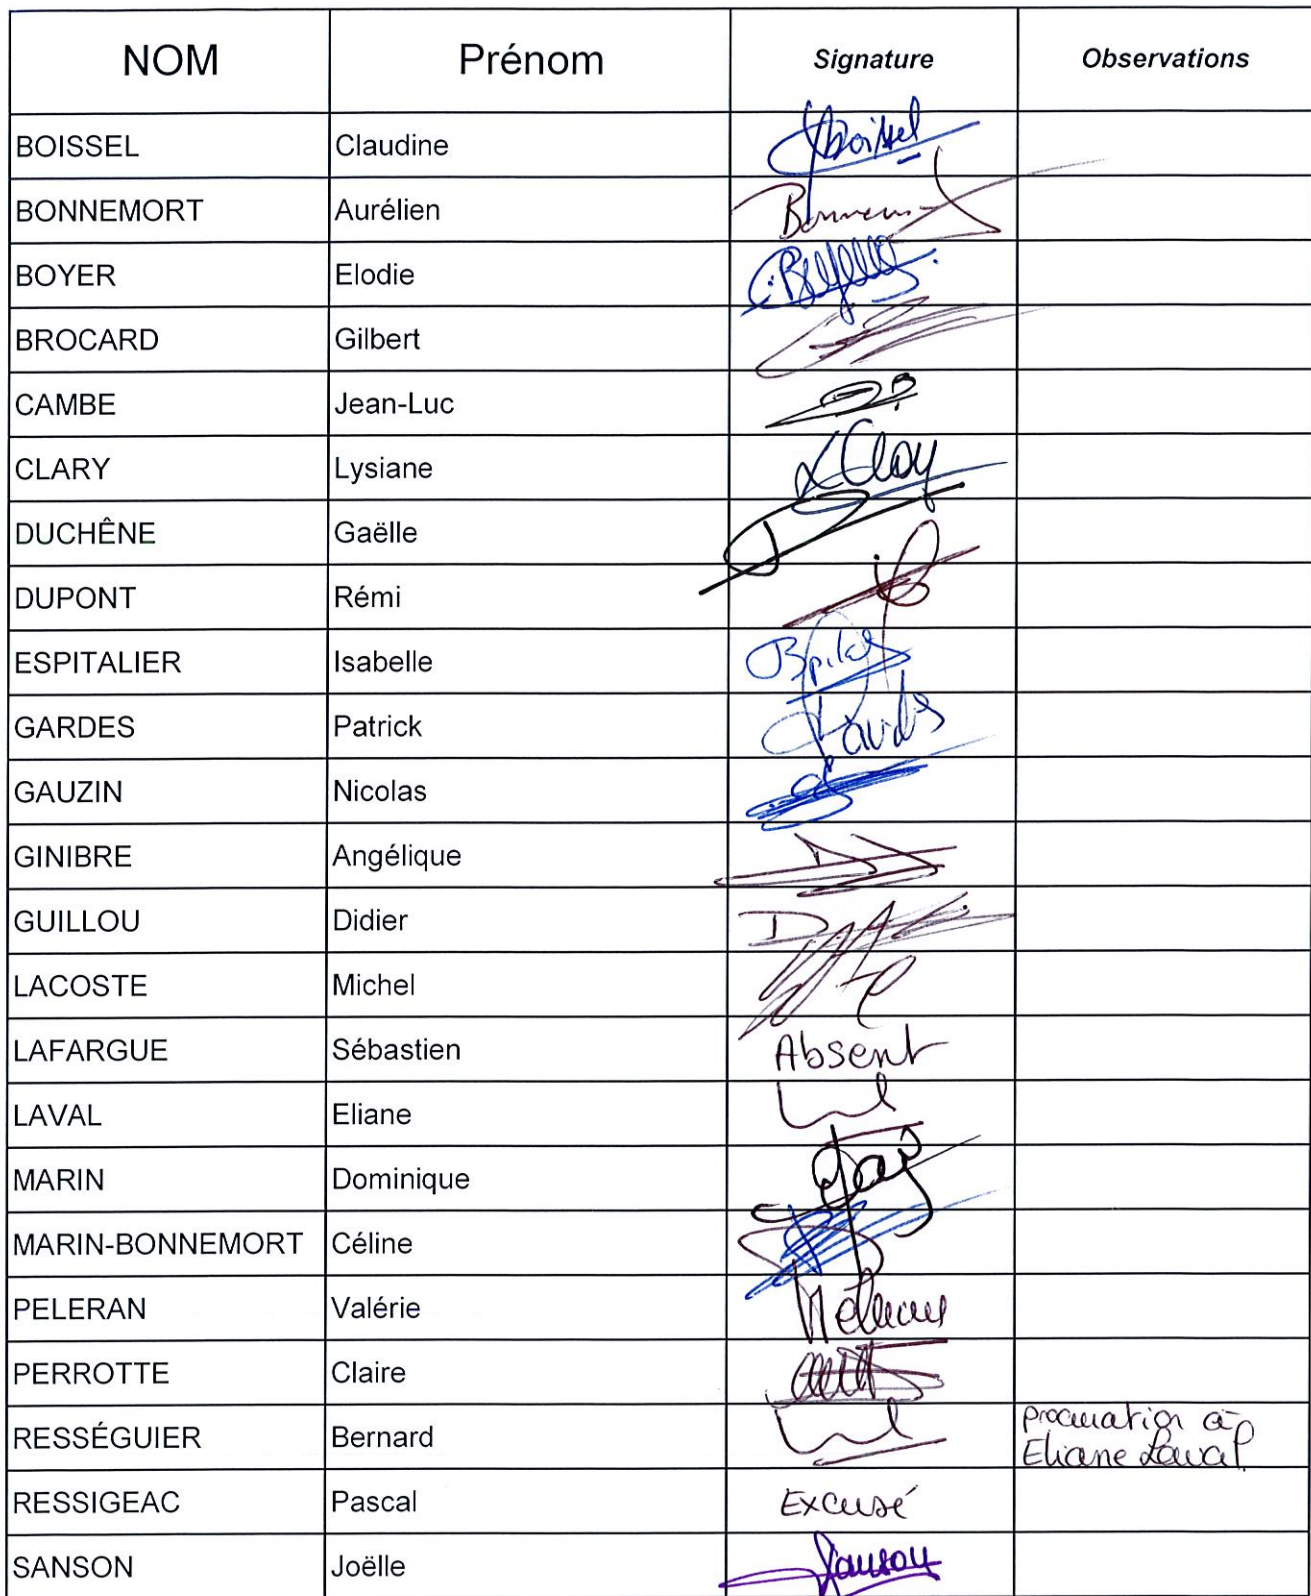 NOM Prénom Signature Observations
BOISSEL Claudine Boissel
BONNEMORT Aurélien
BOYER Elodie
BROCARD Gilbert
CAMBE Jean-Luc
CLARY Lysiane
DUCHÊNE Gaëlle
DUPONT Rémi
ESPITALIER Isabelle
GARDES Patrick
GAUZIN Nicolas
GINIBRE Angélique
GUILLOU Didier
LACOSTE Michel
LAFARGUE Sébastien Absent
LAVAL Eliane
MARIN Dominique
MARIN-BONNEMORT Céline
PELERAN Valérie
PERROTTE Claire
RESSÉGUIER Bernard procuration à
Eliane Laval
RESSIGEAC Pascal Excusé
SANSON Joëlle Sanson